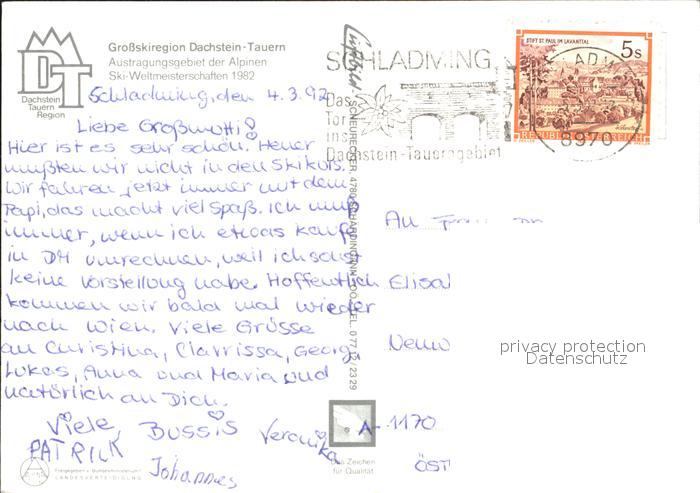 Großskiregion Dachstein-Tauern
Austragungsgebiet der Alpinen
Ski-Weltmeisterschaften 1982
DT
Dachstein
Tauern
Region
Schladming, den 4.3.92
Liebe Großmutti!
Hier ist es sehr schön. Heuer
mußten wir nicht in den Skikurs.
Wir fahren jetzt immer mit dem
Papi, das macht viel Spaß. Ich muß
immer, wenn ich etwas kaufe
in DM umrechnen, weil ich sonst
keine Vorstellung habe. Hoffentlich
kommen wir bald mal wieder
nach Wien. Viele Grüsse
an Christina, Clarrissa, Georg,
Lukas, Anna und Maria und
natürlich an Dich.
Viele Bussis Veronika
PATRICK
Johannes
Freigegeben v. Bundesministerium f.
LANDESVERTEIDIGUNG
SCHEURECKER, 4780 SCHÄRDING/INN, DÖ, TEL. 077 12/23 29
SCHLADMING
Das
Tor
ins
Dachstein-Tauerngebiet
STIFT ST. PAUL IM LAVANTTAL
5s
REPUBLIK ÖSTERREICH
8970
An
Elisa
A-1170
ÖST
privacy protection
Datenschutz
Das Zeichen
für Qualität